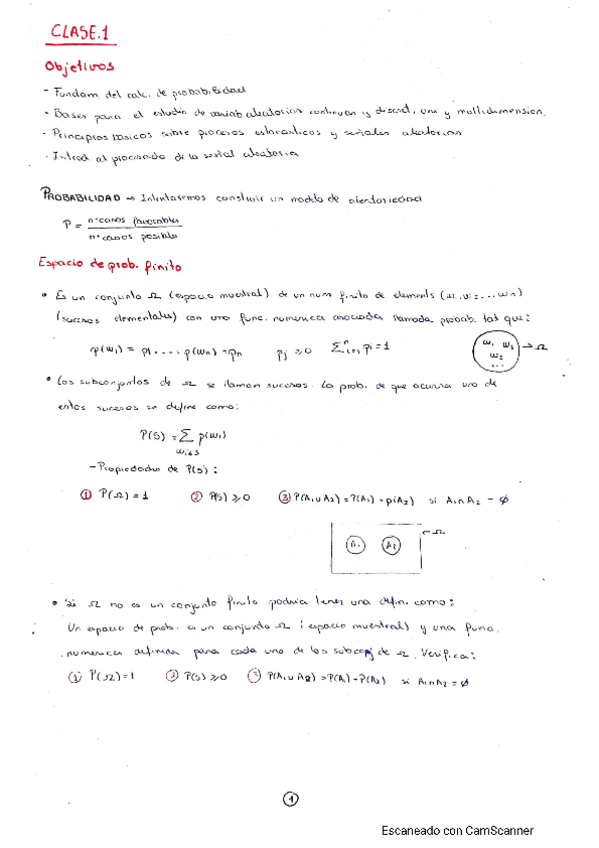 CLASE.1
Objetivos
- Fundam. del calc. de probabilidad
- Bases para el estudio de variab aleatorias continuas y discret, uni y multidimension.
- Principios básicos sobre procesos estocásticos y señales aleatorias
- Introd al procesado de la señal aleatoria
PROBABILIDAD → Intentaremos construir un modelo de aleatoriedad
P = nº casos favorables / nº casos posibles
Espacio de prob. finito
• Es un conjunto Ω (espacio muestral) de un num finito de elements (w₁, w₂ ... wn)
(sucesos elementales) con una func. numerica asociada llamada probab. tal que:
p(w₁) = p₁ .... p(wn) = pn   pj ≥ 0   Σⁿᵢ₌₁ pi = 1
w₁ w₃ → Ω
w₂
...
• Los subconjuntos de Ω se llaman sucesos. La prob. de que ocurra uno de
estos sucesos se define como:
P(S) = Σ p(wi)
wi∈S
- Propiedades de P(S):
① P(Ω) = 1   ② P(S) ≥ 0   ③ P(A₁∪A₂) = P(A₁) + p(A₂)   si A₁∩A₂ = ∅
← Ω
A₁ A₂
• Si Ω no es un conjunto finito podria tener una defin. como:
Un espacio de prob. es un conjunto Ω (espacio muestral) y una func.
numerica definida para cada uno de los subconj de Ω. Verifica:
① P(Ω) = 1   ② P(S) ≥ 0   ③ P(A₁∪A₂) = P(A₁) + P(A₂)   si A₁∩A₂ = ∅
1
Escaneado con CamScanner